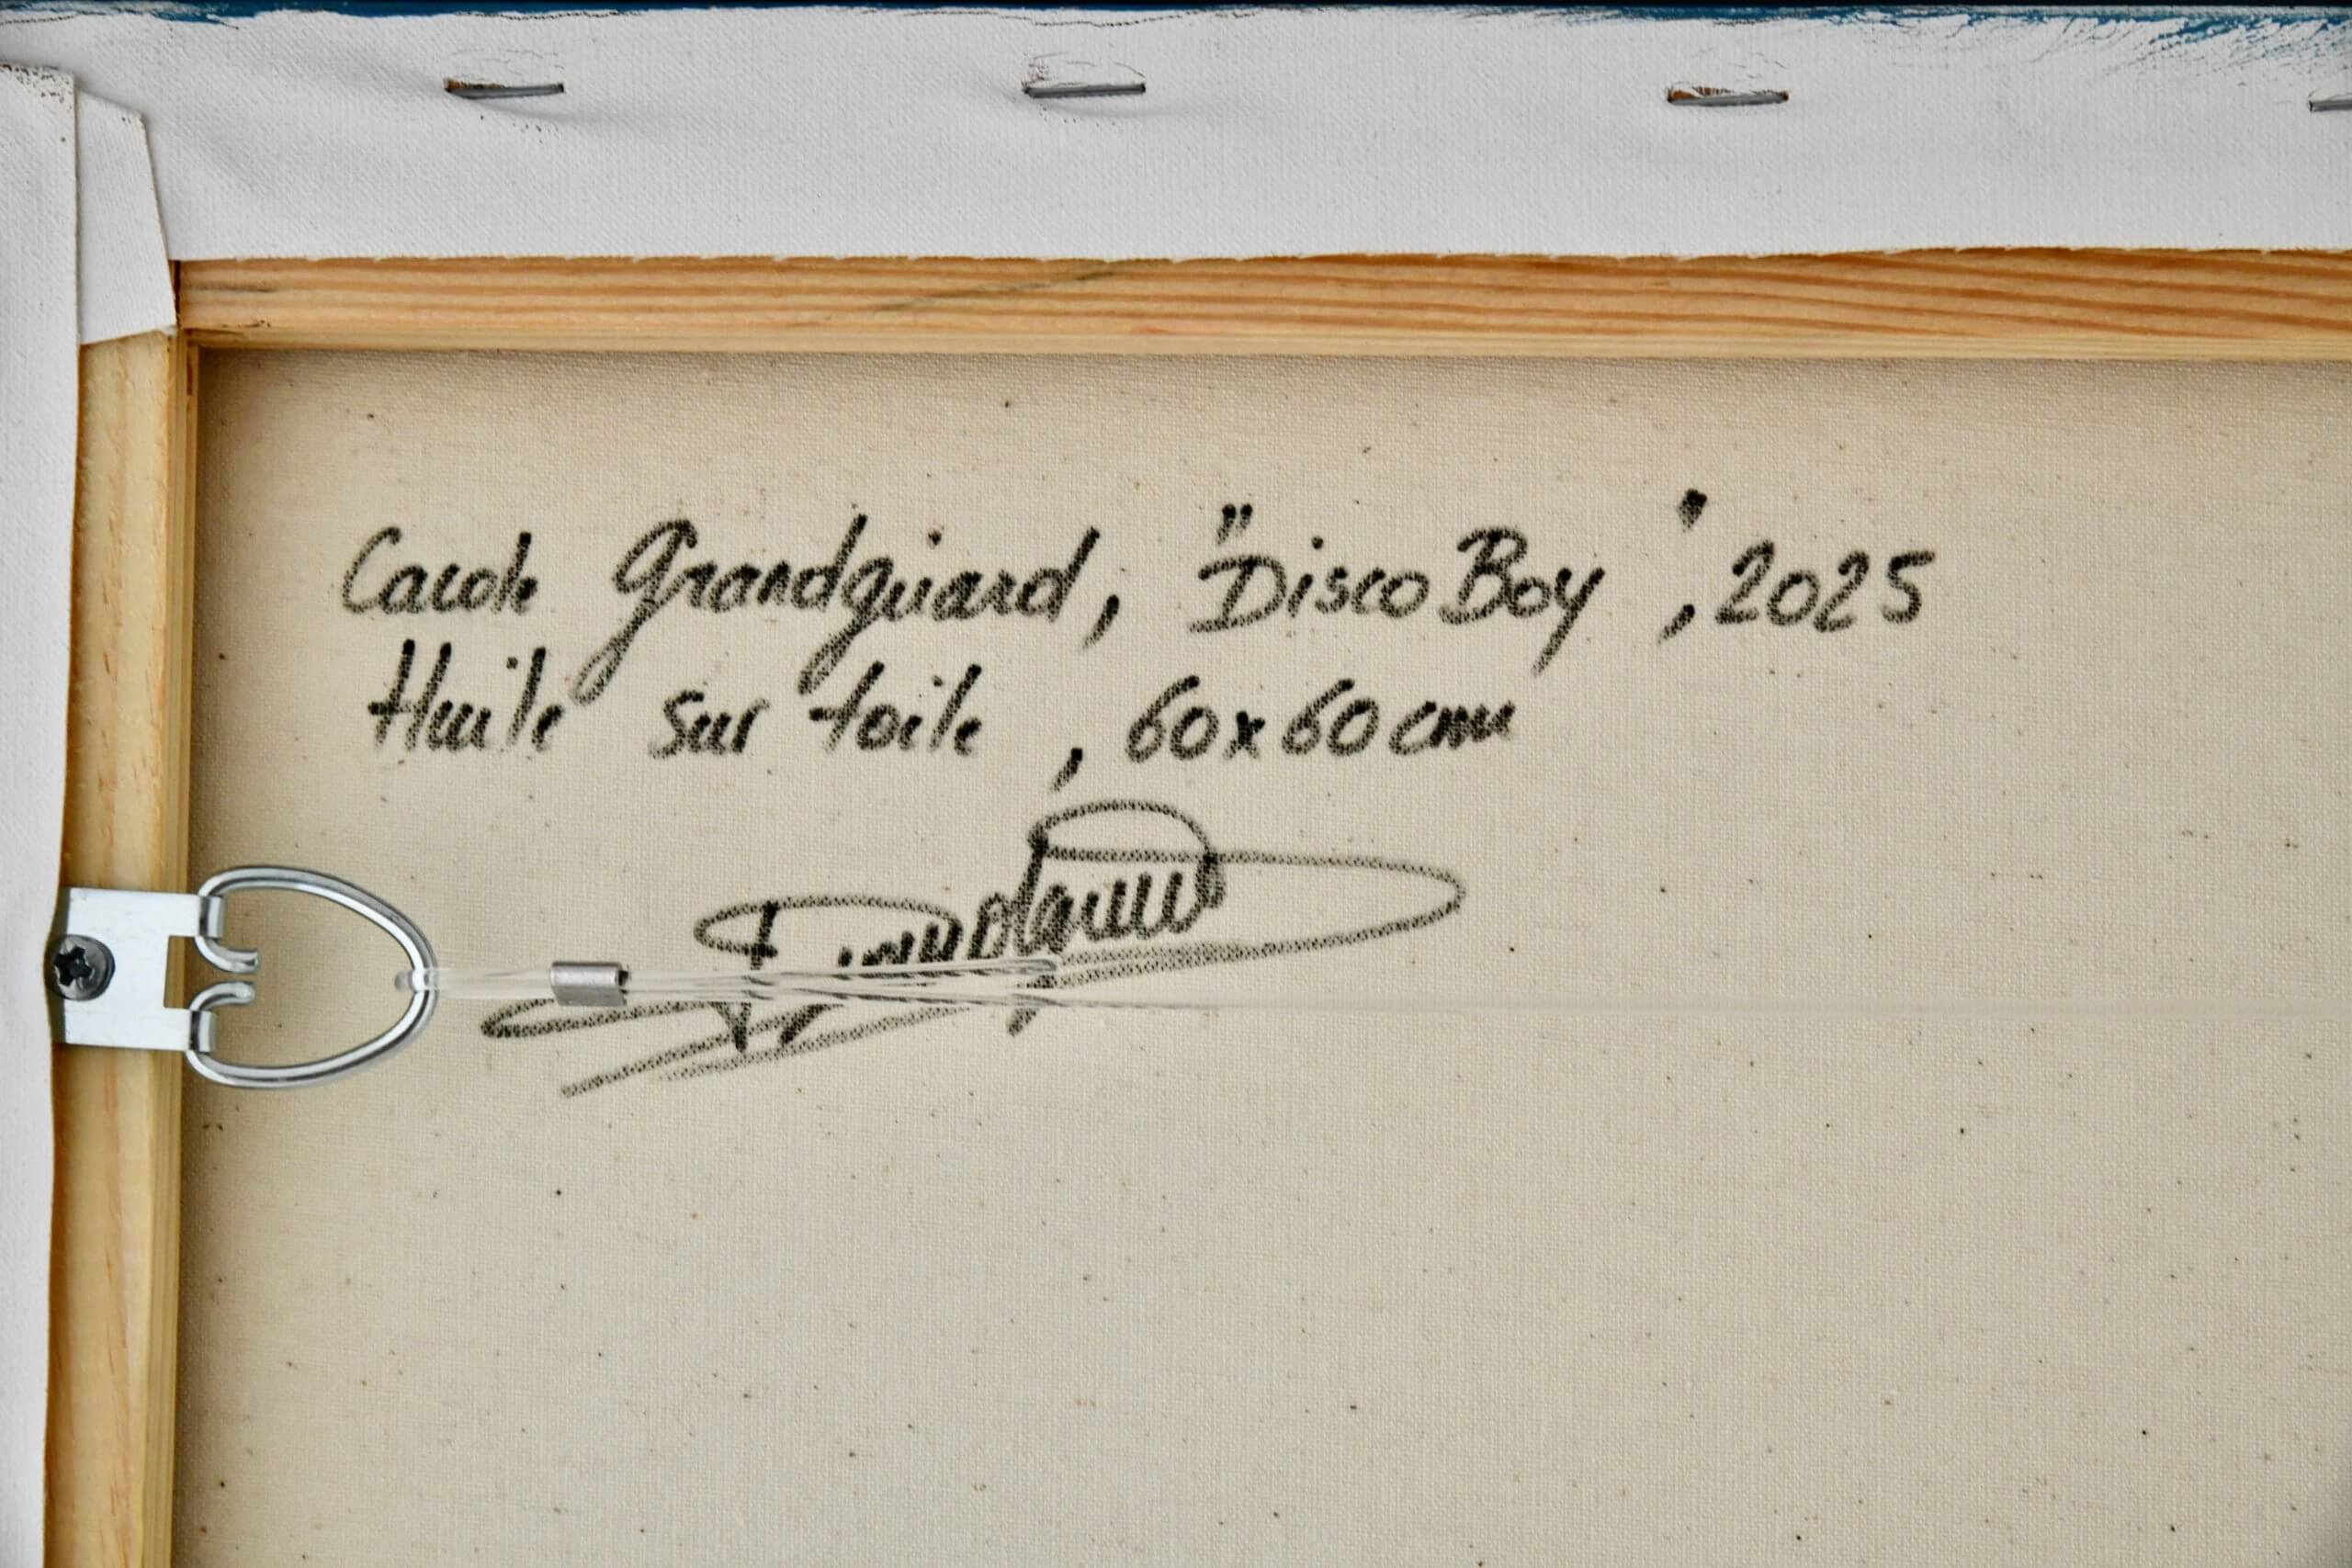 Carole Grandguiard, "Disco Boy", 2025
Huile sur toile, 60x60cm